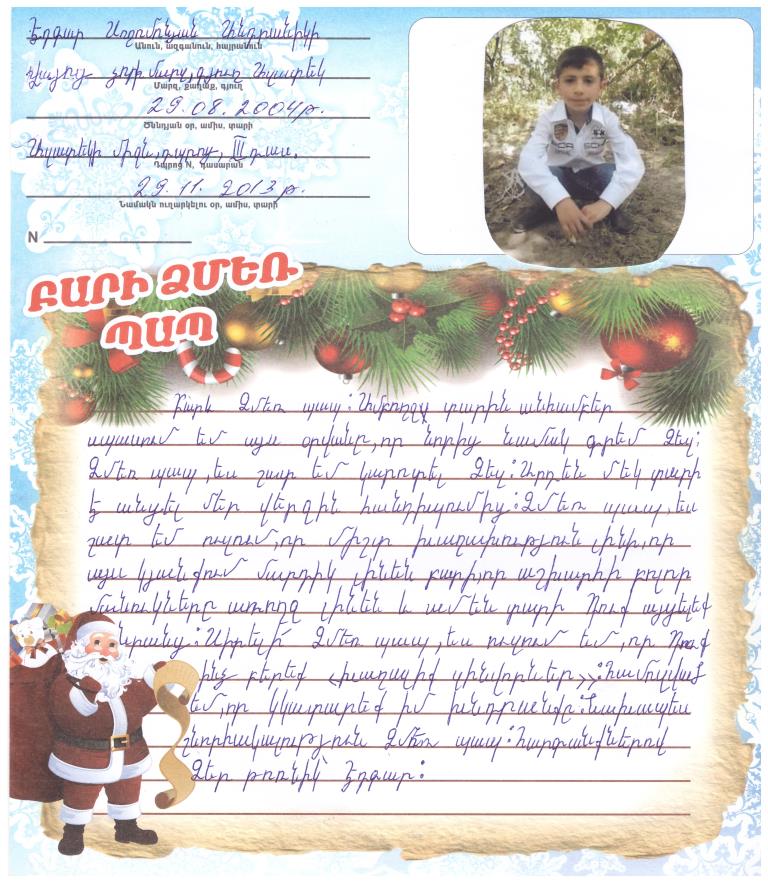 Էդգար Սողոմոնյան Անդրանիկի
Անուն, ազգանուն, հայրանուն
Վայոց ձորի մարզ, գյուղ Աղատեկ
Մարզ, քաղաք, գյուղ
29.08.2004թ.
Ծննդյան օր, ամիս, տարի
Աղատեկի միջն. դպրոց, III դաս.
Դպրոց N, դասարան
29.11.2013թ.
Նամակն ուղարկելու օր, ամիս, տարի
N
ԲԱՐԻ ՁՄԵՌ
ՊԱՊ
Բարև Ձմեռ պապ: Ամբողջ տարին անհամբեր
սպասում եմ այս օրվան, որ նորից նամակ գրեմ Ձեզ:
Ձմեռ պապ, ես շատ եմ կարոտել Ձեզ: Արդեն մեկ տարի
է անցել մեր վերջին հանդիպումից: Ձմեռ պապ, ես
շատ եմ ուզում, որ միշտ խաղաղություն լինի, որ
այս կյանքում մարդիկ լինեն բարի, որ աշխարհի բոլոր
մանուկները առողջ լինեն և ամեն տարի Դուք այցելեք
նրանց: Սիրելի՛ Ձմեռ պապ, ես ուզում եմ, որ Դուք
ինձ բերեք «խաղալիք զինվորներ»: Համոզված
եմ, որ կկատարեք իմ խնդրանքը: Նախապես
շնորհակալություն Ձմեռ պապ: Հարգանքներով
Ձեր թոռնիկ՝ Էդգար: